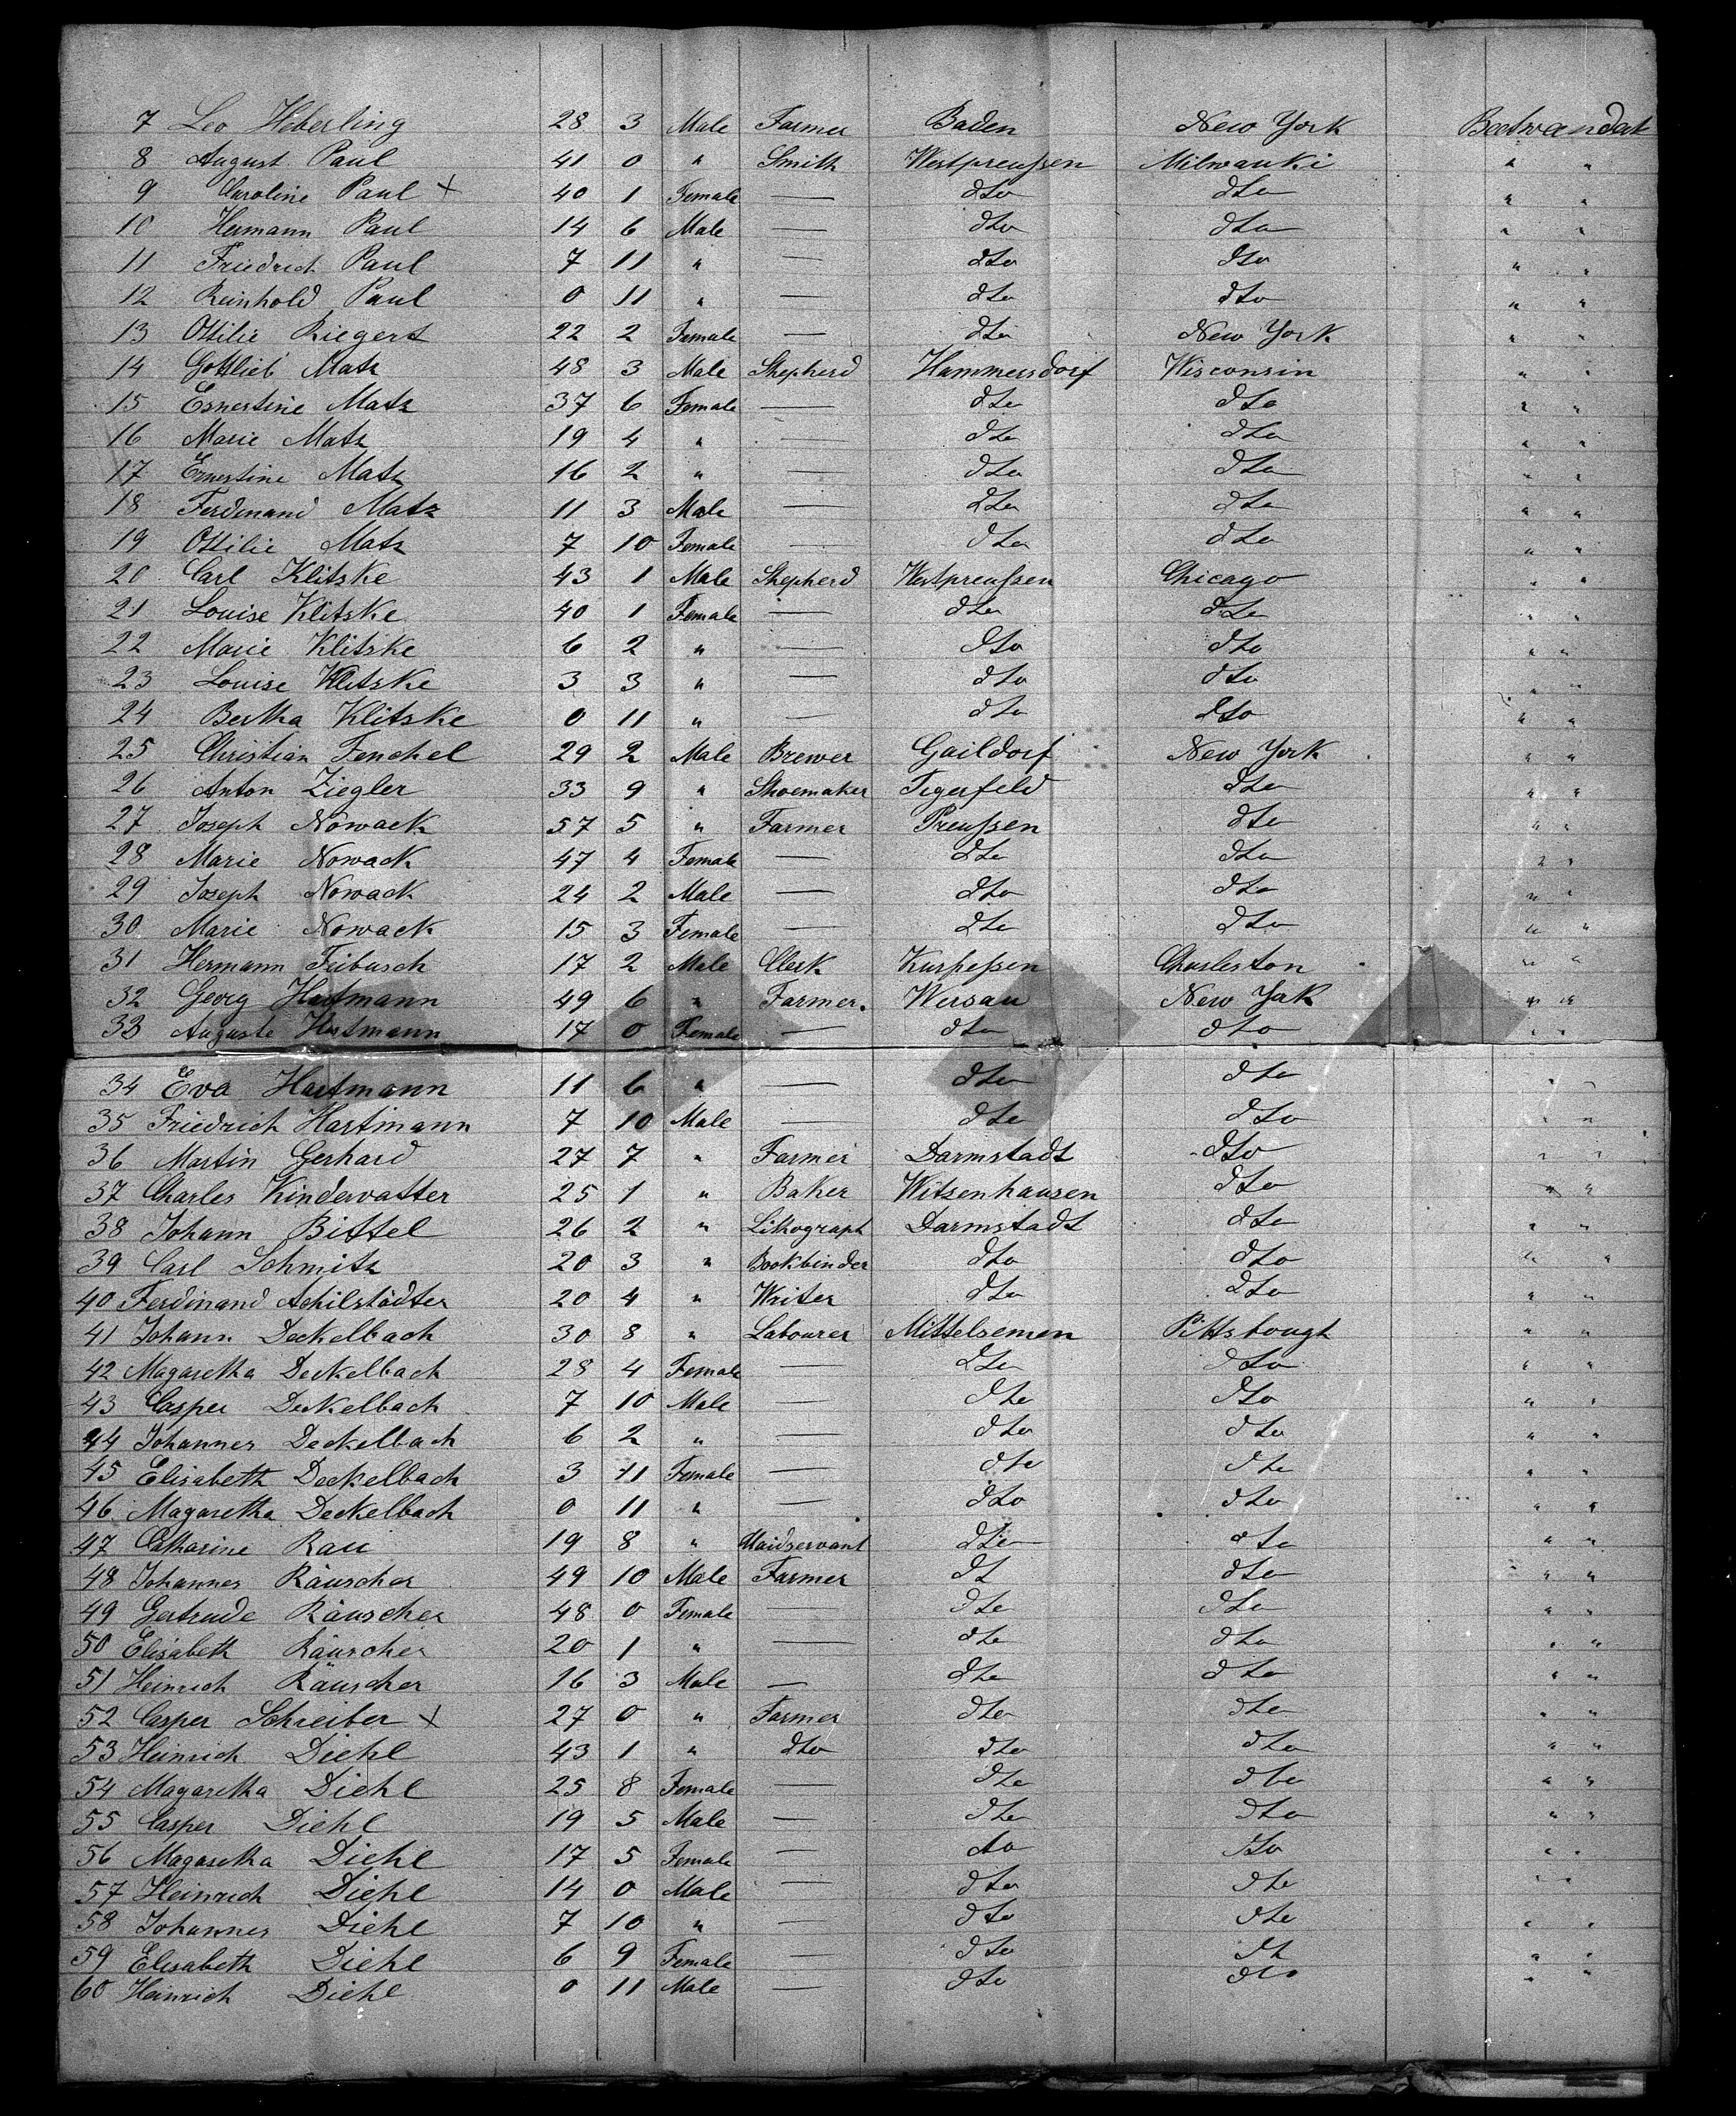 7 Leo Heberling 28 3 Male Farmer Baden New York
8 August Paul 41 0 " Smith Westpreußen Milwauki " "
9 Caroline Paul + 40 1 Female — dto dto " "
10 Hermann Paul 14 6 Male — dto dto " "
11 Friedrich Paul 7 11 " — dto dto " "
12 Reinhold Paul 0 11 " — dto dto " "
13 Ottilie Riegert 22 2 Female — dto New York " "
14 Gottlieb Matz 48 3 Male Shepherd Hammersdorf Wisconsin " "
15 Ernestine Matz 37 6 Female — dto dto " "
16 Marie Matz 19 4 " — dto dto " "
17 Ernestine Matz 16 2 " — dto dto " "
18 Ferdinand Matz 11 3 Male — dto dto " "
19 Ottilie Matz 7 10 Female — dto dto " "
20 Carl Klitske 43 1 Male Shepherd Westpreußen Chicago " "
21 Louise Klitske 40 1 Female — dto dto " "
22 Marie Klitske 6 2 " — dto dto " "
23 Louise Klitske 3 3 " — dto dto " "
24 Bertha Klitske 0 11 " — dto dto " "
25 Christian Fenchel 29 2 Male Brewer Gaildorf New York " "
26 Anton Ziegler 33 9 " Shoemaker Tigerfeld dto " "
27 Joseph Nowack 57 5 " Farmer Preußen dto " "
28 Marie Nowack 47 4 Female — dto dto " "
29 Joseph Nowack 24 2 Male — dto dto " "
30 Marie Nowack 15 3 Female — dto dto " "
31 Hermann Feibusch 17 2 Male Clerk Charleston " "
32 Georg Hartmann 49 6 " Farmer. Wersau New York " "
33 Auguste Hartmann 17 0 Female — dto dto " "
34 Eva Hartmann 11 6 " — dto dto " "
35 Friedrich Hartmann 7 10 Male — dto dto " "
36 Martin Gerhard 27 7 " Farmer Darmstadt dto " "
37 Charles Kindervatter 25 1 " Baker Witsenhausen dto " "
38 Johann Bittel 26 2 " Lithograph Darmstadt dto " "
39 Carl Schmitz 20 3 " Bookbinder dto dto " "
40 Ferdinand Achilstädter 20 4 " Writer dto dto " "
41 Johann Deckelbach 30 8 " Labourer Mittelsemen Pittsbough " "
42 Magaretha Deckelbach 28 4 Female — dto dto " "
43 Casper Deckelbach 7 10 Male — dto dto " "
44 Johannes Deckelbach 6 2 " — dto dto " "
45 Elisabeth Deckelbach 3 11 Female — dto dto " "
46 Magaretha Deckelbach 0 11 " — dto dto " "
47 Catharine Rau 19 8 " Maidservant dto dto " "
48 Johannes Räuscher 49 10 Male Farmer dt dto " "
49 Gertrude Räuscher 48 0 Female — dto dto " "
50 Elisabeth Räuscher 20 1 " — dto dto " "
51 Heinrich Räuscher 16 3 Male — dto dto " "
52 Casper Schreiber + 27 0 " Farmer dto dto " "
53 Heinrich Diehl 43 1 " dto dto dto " "
54 Magaretha Diehl 25 8 Female — dto dto " "
55 Casper Diehl 19 5 Male — dto dto " "
56 Magaretha Diehl 17 5 Female — dto dto " "
57 Heinrich Diehl 14 0 Male — dto dto " "
58 Johannes Diehl 7 10 " — dto dto " "
59 Elisabeth Diehl 6 9 Female — dto dt " "
60 Heinrich Diehl 0 11 Male — dto dto " "